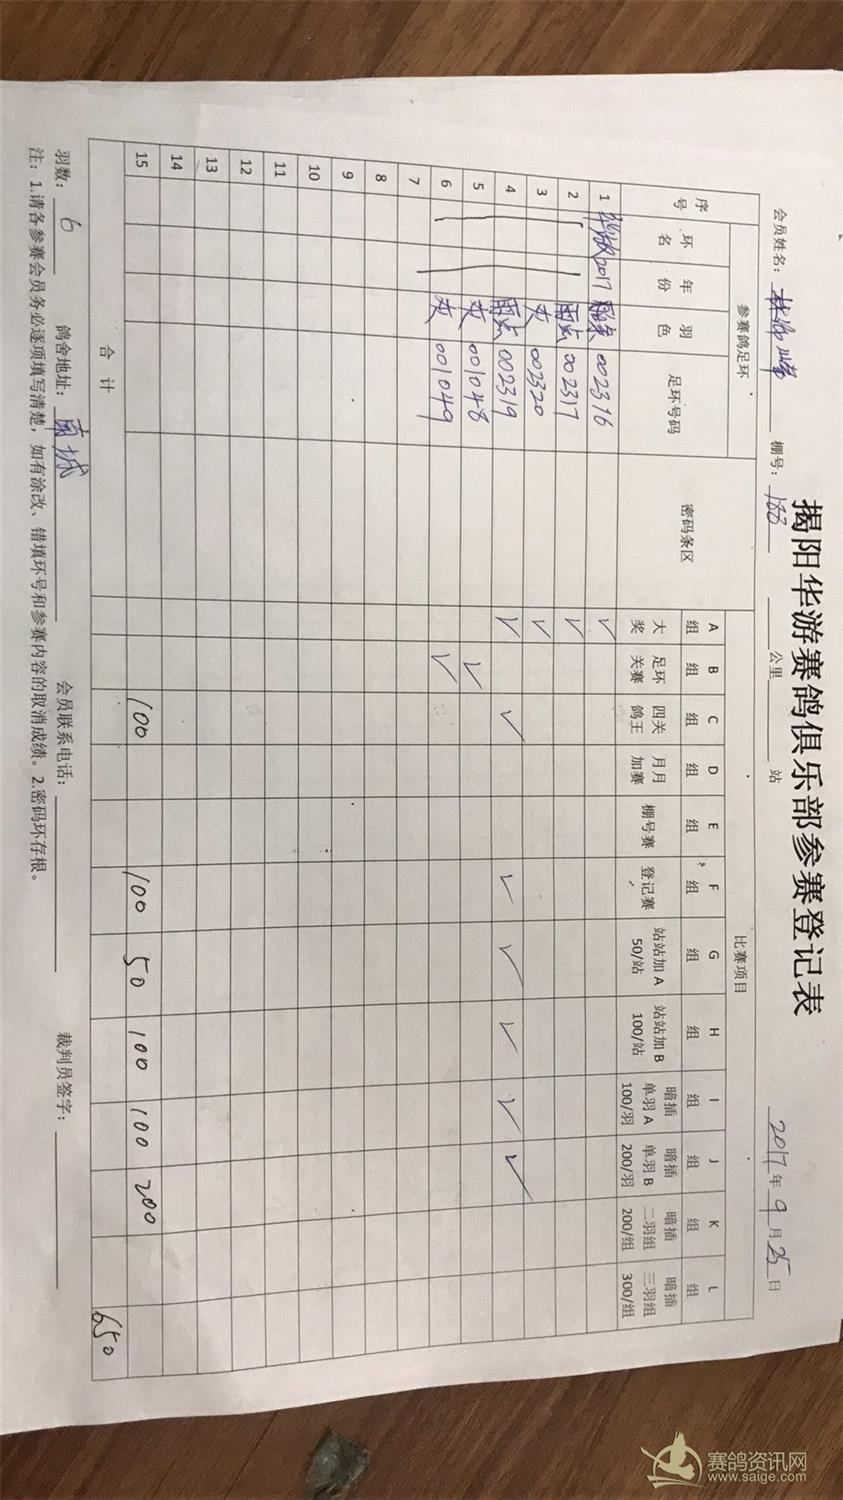 揭阳华游赛鸽俱乐部参赛登记表
会员姓名: 林 峰 棚号: 188 公里 站 2017年9月25日
序号 参赛鸽足环 密码条区 比赛项目
环名 年份 羽色 足环号码 A组 B组 C组 D组 E组 F组 G组 H组 I组 J组 K组 L组
大奖 足环关赛 四关鸽王 月月加赛 棚号赛 登记赛 站站加A 50/站 站站加B 100/站 暗插单羽A 100/羽 暗插单羽B 200/羽 暗插二羽组 200/组 暗插三羽组 300/组
1 2017 雨点 002316 ✓
2 雨点 002317 ✓
3 灰 002320 ✓
4 雨点 002319 ✓ ✓ ✓ ✓ ✓ ✓ ✓
5 灰 001048 ✓
6 灰 001049 ✓
7
8
9
10
11
12
13
14
15 100 100 50 100 100 200
合计 650
羽数: 6 鸽舍地址: 南城 会员联系电话: 裁判员签字:
注: 1.请各参赛会员务必逐项填写清楚, 如有涂改、错填环号和参赛内容的取消成绩。2.密码环存根。
赛鸽资讯网
www.saige.com